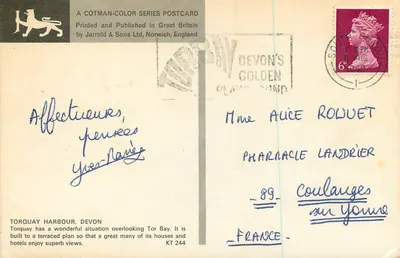 A COTMAN-COLOR SERIES POSTCARD
Printed and Published in Great Britain
by Jarrold & Sons Ltd, Norwich, England
TORBAY
DEVON'S
GOLDEN
PLAYGROUND
6P
Affectueuses
pensées
Mme ALICE ROLUET
PHARMACIE LANDRIER
89 Coulanges
sur Yonne
FRANCE
TORQUAY HARBOUR, DEVON
Torquay has a wonderful situation overlooking Tor Bay. It is
built to a terraced plan so that a great many of its houses and
hotels enjoy superb views.
KT 244